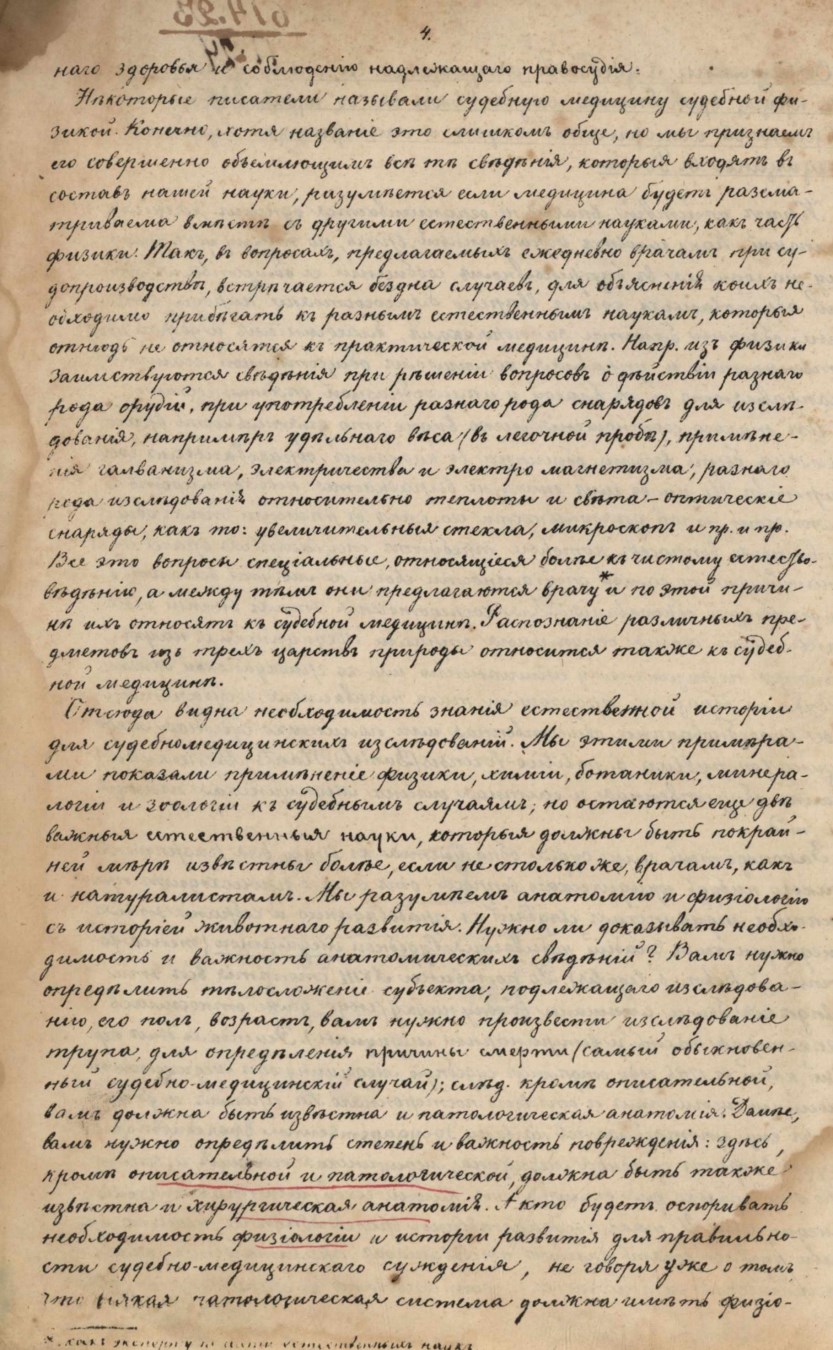 614.23
4.
наго здоровья и соблюденію надлежащаго правосудія.
Нѣкоторые писатели называли судебную медицину судебной фи-
зикой. Конечно, хотя названіе это слишкомъ обще, но мы признаемъ
его совершенно объемлющимъ всѣ тѣ свѣдѣнія, которыя входятъ въ
составъ нашей науки, разумѣется если медицина будетъ разсма-
триваема вмѣстѣ съ другими естественными науками, какъ часть
физики. Такъ, въ вопросахъ, предлагаемыхъ ежедневно врачамъ при су-
допроизводствѣ, встрѣчается бездна случаевъ, для объясненія коихъ не-
обходимо прибѣгать къ разнымъ естественнымъ наукамъ, которыя
отнюдь не относятся къ практической медицинѣ. Напр. изъ физики
заимствуются свѣдѣнія при рѣшеніи вопросовъ о дѣйствіи разнаго
рода орудій, при употребленіи разнаго рода снарядовъ для изслѣ-
дованія, напримѣръ удѣльнаго вѣса (въ легочной пробѣ), примѣне-
нія галванизма, электричества и электро магнетизма, разнаго
рода изслѣдованія относительно теплоты и свѣта – оптическіе
снаряды, какъ то: увеличительныя стекла, микроскопъ и пр. и пр.
Все это вопросы спеціальные, относящіеся болѣе къ чистому естество-
вѣдѣнію, а между тѣмъ они предлагаются врачу* и по этой причи-
нѣ ихъ относятъ къ судебной медицинѣ. Распознаніе различныхъ пре-
дметовъ изъ трехъ царствъ природы относится также къ судеб-
ной медицинѣ.
Отсюда видна необходимость знанія естественной исторіи
для судебномедицинскихъ изслѣдованій. Мы этими примѣра-
ми показали примѣненіе физики, химіи, ботаники, минера-
логіи и зоологіи къ судебнымъ случаямъ; но остаются еще двѣ
важныя естественныя науки, которыя должны быть покрай-
ней мѣрѣ извѣстны болѣе, если не столько же, врачамъ, какъ
и натуралистамъ. Мы разумѣемъ анатомію и физіологію
съ исторіей животнаго развитія. Нужно ли доказывать необхо-
димость и важность анатомическихъ свѣдѣній? Вамъ нужно
опредѣлить тѣлосложеніе субъекта, подлежащаго изслѣдова-
нію, его полъ, возрастъ, вамъ нужно произвести изслѣдованіе
трупа, для опредѣленія причины смерти (самый обыкновен-
ный судебно-медицинскій случай); слѣд. кромѣ описательной,
вамъ должна быть извѣстна и патологическая анатомія. Далѣе,
вамъ нужно опредѣлить степень и важность поврежденія: здѣсь,
кромѣ описательной и патологической, должна быть также
извѣстна и хирургическая анатомія. А кто будетъ оспоривать
необходимость физіологіи и исторіи развитія для правильно-
сти судебно-медицинскаго сужденія, не говоря уже о томъ
что всякая патологическая система должна имѣть физіо-
*. какъ эксперту естественныхъ наукъ